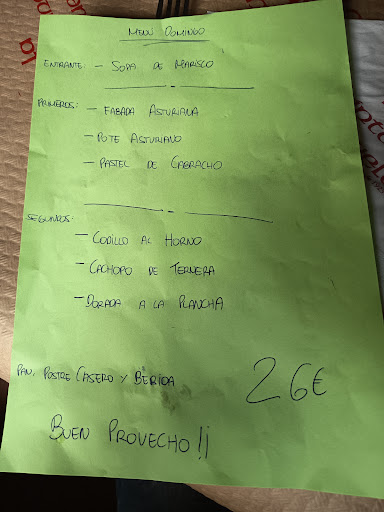 MENU DOMINGO
ENTRANTE: - SOPA DE MARISCO
PRIMEROS: - FABADA ASTURIANA
- POTE ASTURIANO
- PASTEL DE CABRACHO
SEGUNDOS:
- CODILLO AL HORNO
- CACHOPO DE TERNERA
- DORADA A LA PLANCHA
PAN, POSTRE CASERO Y BEBIDA 26€
BUEN PROVECHO!!